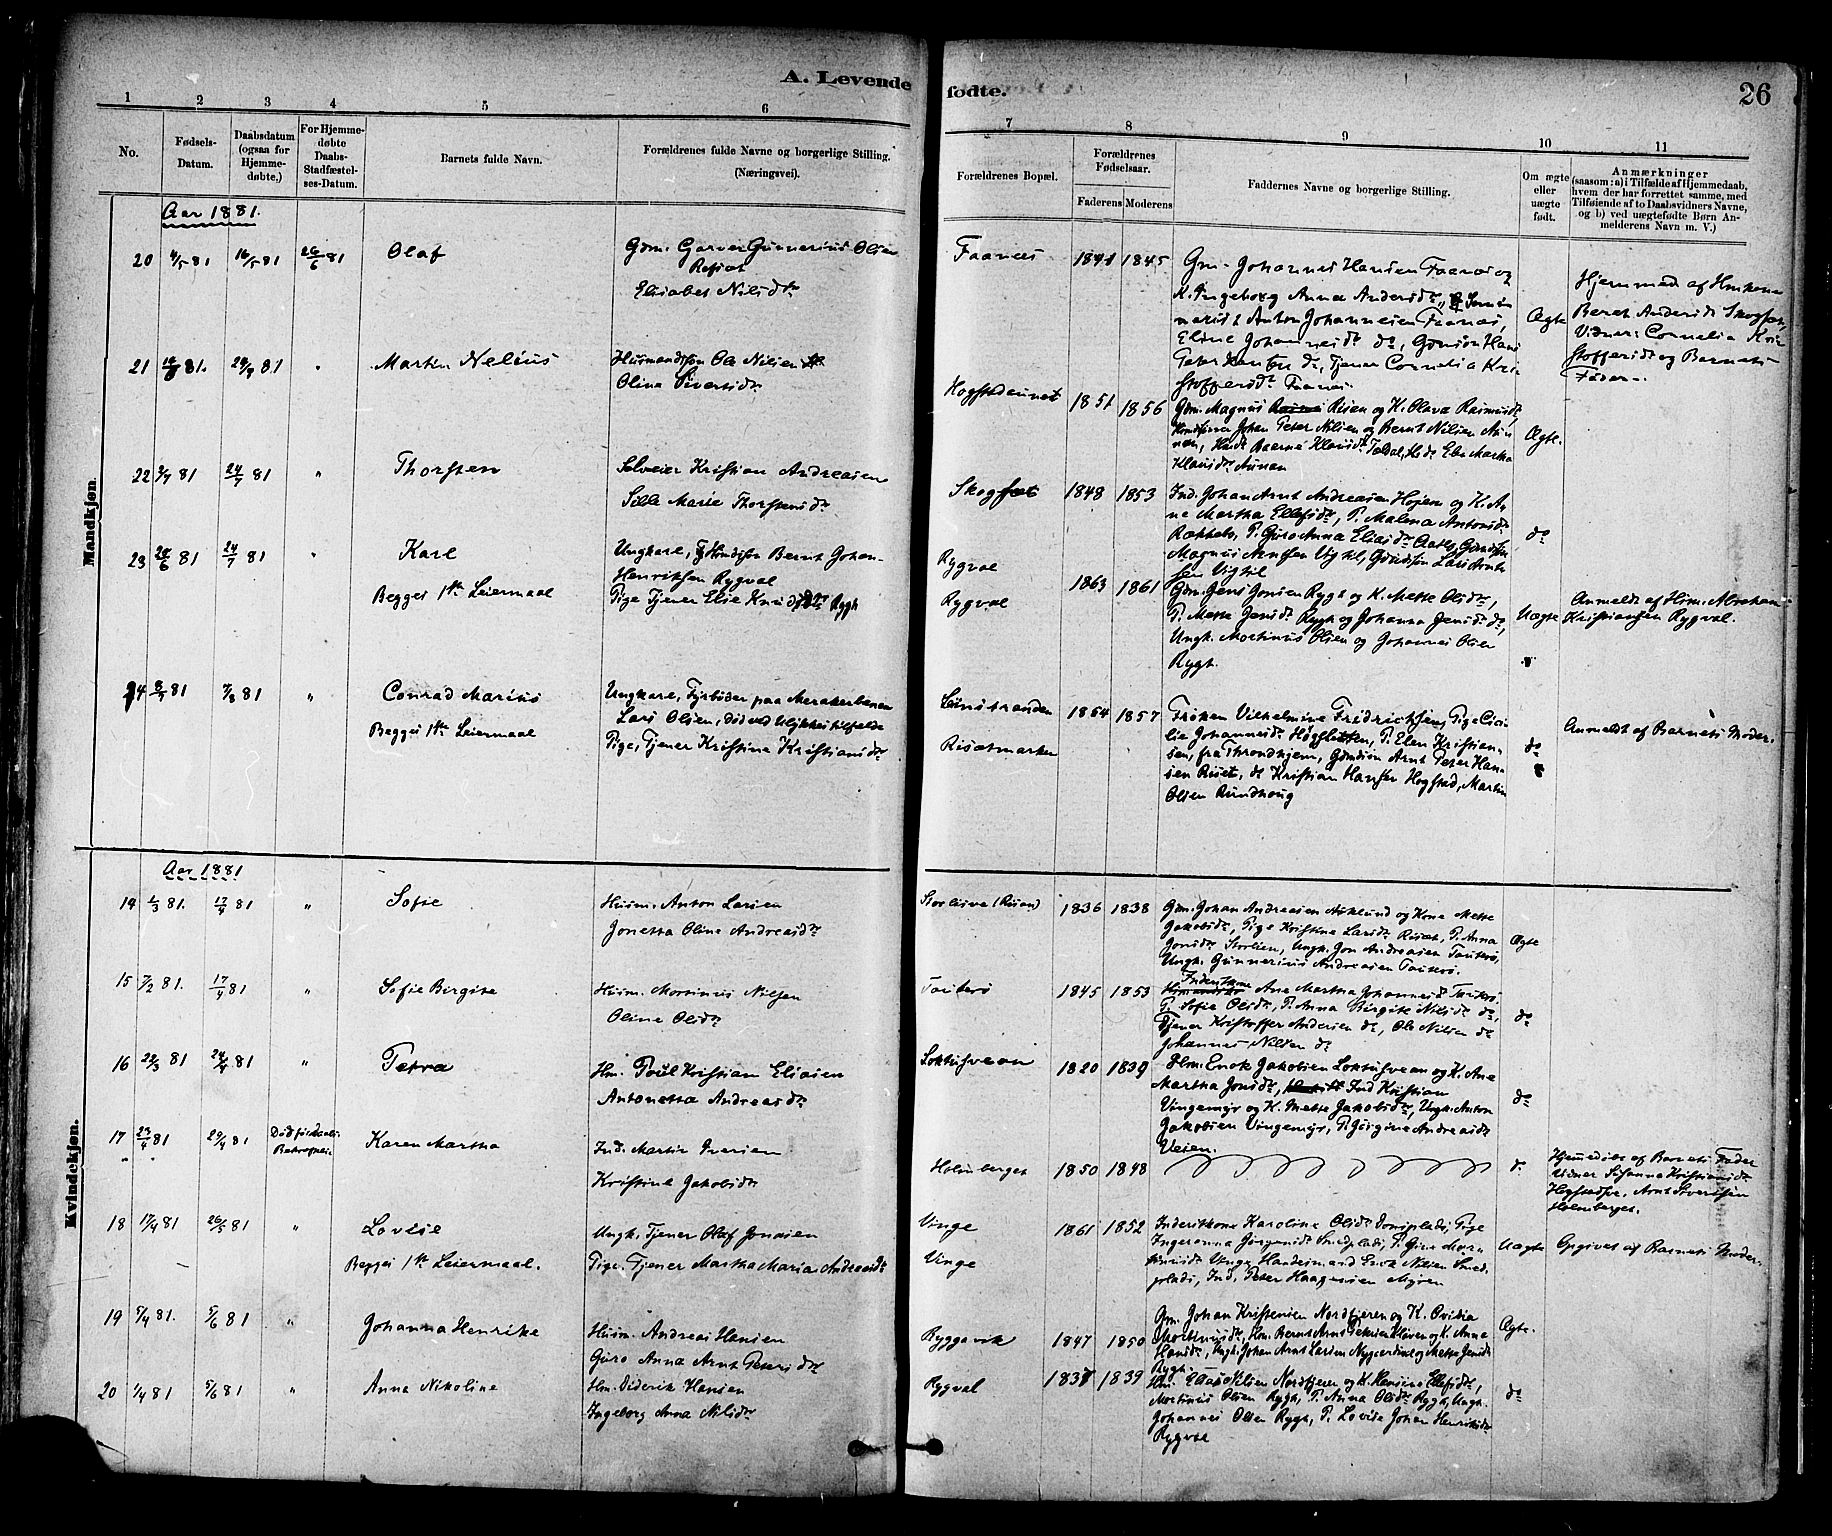 A. Levende fødte.
26
1 2 3 4 5 6 7 8 9 10 11
No.
Fødsels-Datum.
Daabsdatum (ogsaa for Hjemme-døbte,)
For Hjemme-døbte Daabs-Stadfæstel-ses-Datum.
Barnets fulde Navn.
Forældrenes fulde Navne og borgerlige Stilling.
(Næringsvei).
Forældrenes Bopæl.
Forældrenes Fødselsaar.
Faderens Moderens
Faddernes Navne og borgerlige Stilling.
Om ægte eller uægte født.
Anmærkninger
(saasom: a) i Tilfælde af Hjemmedaab,
hvem der har forrettet samme, med
Tilføiende af to Daabsvidners Navne,
og b) ved uægtefødte Børn An-
melderens Navn m. V.)
Mandkjøn.
Aar 1881.
20 81 16/5 81 26/6 81 Olaf
Gdm. Garver Gunnerius Olsen
Elisabet Nilsdtr
Faanes 1845
Gm. Johannes Hansen Faanes og
K. Ingeborg Anna Andersdtr,
Anton Johannesen Faanes,
Eline Johannesdtr do, Gdmsøn Hans
Peter do, Tjener Cornelia Kri-
stoffersdtr Faanes.
Ægte
Hjemmed af Huskone
Beret Andersdtr
Vidner: Cornelia Kri-
stoffersdtr og Barnets
Fader.
21 81. 24/7 81 " Martin Nelius
Husmandssøn Ole Nilsen
Olina Sivertsdtr
Hogstadaunet 1851 1856
Gdm. Magnus Risan og K. Olava Rasmusdtr,
Johan Peter Nilsen og Bernt Nilsen
Klausdtr, Martha
Klausdtr Aunan
Ægte.
22 81 24/7 81 " Thorsten
Selveier Kristian Andreasen
Sille Marie Thorstensdtr
1848 1853
Ind. Johan Arnt Andreasen Højem og K. A-
ne Martha Ellefsdtr, P. Malena Antonsdtr
P. Guro Anna Eliasdtr
Magnus Arntsen Vigtil, Gdmssøn Lars Arnt-
sen Vigtil
do
23 81 24/7 81 " Karl
Begges 1ste Leiermaal
Ungkarl, Bernt Johan
Henriksen Rygval
Pige Tjener Else Knudsdtr Rygh
Rygval
Rygval
1863 1861
Gdm. Jens Jonsen Rygh og K. Mette Olsdtr,
P. Mette Jensdtr Rygh og Johanna Jensdtr do,
Ungk. Martinus Olsen og Johannes Olsen
Rygh.
Uægte
Anmeldt af Hsm. Abraham
Kristiansen Rygval.
24 81 7/8 81 " Conrad Marius
Begges 1ste Leiermaal
Ungkarl, Fyrbøder paa Merakerbanen
Lars Olsen, død ved Ulykkestilfælde
Pige, Tjener Kristine Kristiansdtr
1854 1857
Frøken Vilhelmine Fridrichsen, Pige Cici-
lie Johannesdtr P. Elen Kristian-
sen, fra Throndhjem, Gdmssøn Arnt Peter Han-
sen Risæt, do Kristian Hansen Hogstad, Martin
Olsen Rundhoug
do
Anmeldt af Barnets Moder.
Kvindekjøn.
Aar 1881
14 1/3 81. 17/4 81 " Sofie
Husm. Anton Larsen
Jonetta Oline Andreasdtr
1836 1838
Gdm. Johan Andreasen og Kone Mette
Jakobsdtr, Pige Kristine Larsdtr Risæt, P. Anna
Jonsdtr Storlien, Ungk. Jon Andreasen Tauterø,
Ungk. Gunnerius Andreasen Tauterø.
Ægte
15 7/2 81. 17/4 81 " Sofie Birgite
Husm. Martinus Nilsen
Oline Olsdtr
Tauterø 1845 1853
Ane Martha Johannesdtr Tauterø,
P. Sofie Olsdtr, P. Anna Birgite Nilsdtr do,
Tjener Kristoffer Andersen do, Ole Nilsen do
Johannes Nilsen do
do
16 22/3 81 24/4 81 " Petra
Hm. Poul Kristian Eliasen
Antonetta Andreasdtr
1820 1839
Hm. Enok Jakobsen og K. Ane
Martha Jonsdtr, Ind Kristian
Vingemyr og K. Mette Jakobsdtr, Ungk. Anton
Jakobsen Vingemyr, P. Jørgine Andreasdtr
Veien.
do
17 23/4 81 29/4 81 Død før Daabs-
Bekræftelse
Karen Martha
Ind. Martin Iversen
Kristine Jakobsdtr
Holmberget 1850 1848
do
Hjemmedøbt af Barnets Fader
Vidner Susanna Kristiansdtr
Arnt Sivertsen
Holmberget.
18 17/4 81 26/5 81 " Lovise
Begges 1ste Leiermaal.
Ungk. Tjener Olaf Jonasen
Pige. Tjener Martha Maria Andreasdtr
Vinge
Vinge
1861 1852
Inderstkone Karoline Olsdtr Pige
Ingeranna Jørgensdtr
Vinge, Handelsmand Enok Nilsen
Ind. Peter Haagensen Myren
Uægte
Opgivet af Barnets Moder.
19 5/4 81. 5/6 81 " Johanna Henrike
Husm. Andreas Hansen
Guro Anna Arnt Petersdtr
Ryggavik 1847 1850
Gm. Johan Kristensen Nordfjeren og K.
Martinusdtr, Hm. Bernt Arnt Petersen og K. Anna
Hansdtr, Ungk. Johan Arnt Larsen og Mette Jensdtr
Rygh.
Ægte.
20 1/4 81 5/6 81 " Anna Nikoline
Hm. Diderik Hansen
Ingeborg Anna Nilsdtr
Rygval 1837 1839
Hm. Nordfjeren og K. Ellefsdtr,
Martinus Olsen Rygh, P. Anna Olsdtr Rygh, Ungk.
Johannes Olsen Rygh, P. Lovise Johan Henriksdtr
Rygval
do